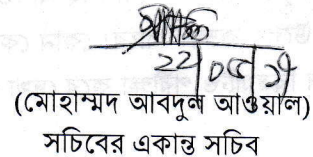 22/০৫/১৭
(মোহাম্মদ আবদুল আওয়াল)
সচিবের একান্ত সচিব